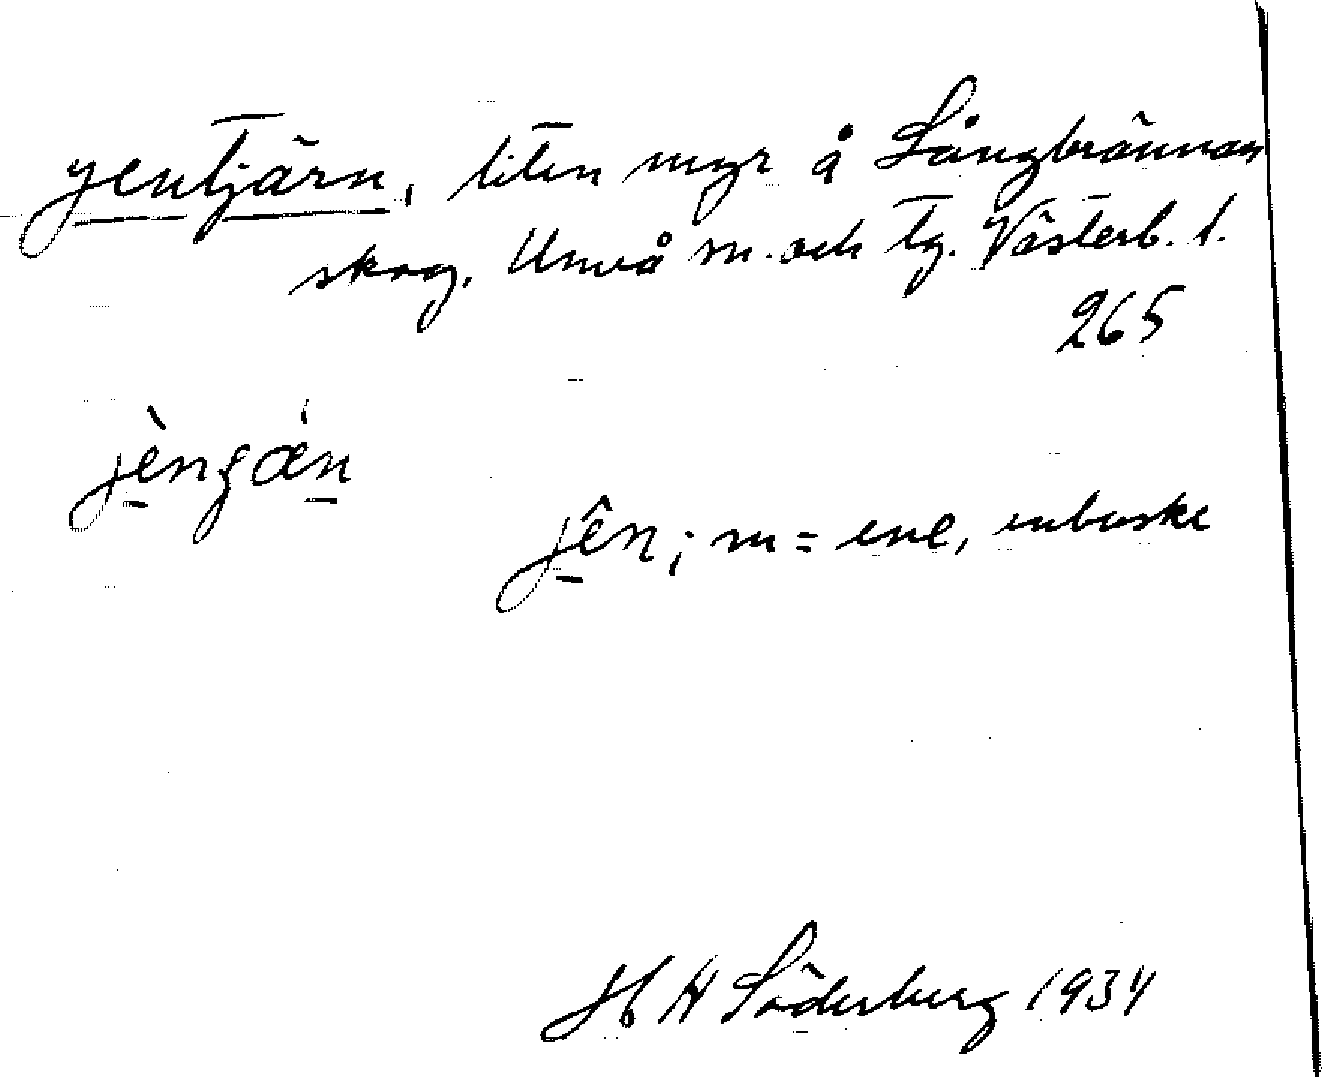 Jentjärn, liten myr å Långbrännas
skog, Umeå sn. och tg. Västerb. l.
265
jèngǽn
jên; m = ene, enbuske
H H Söderberg 1934